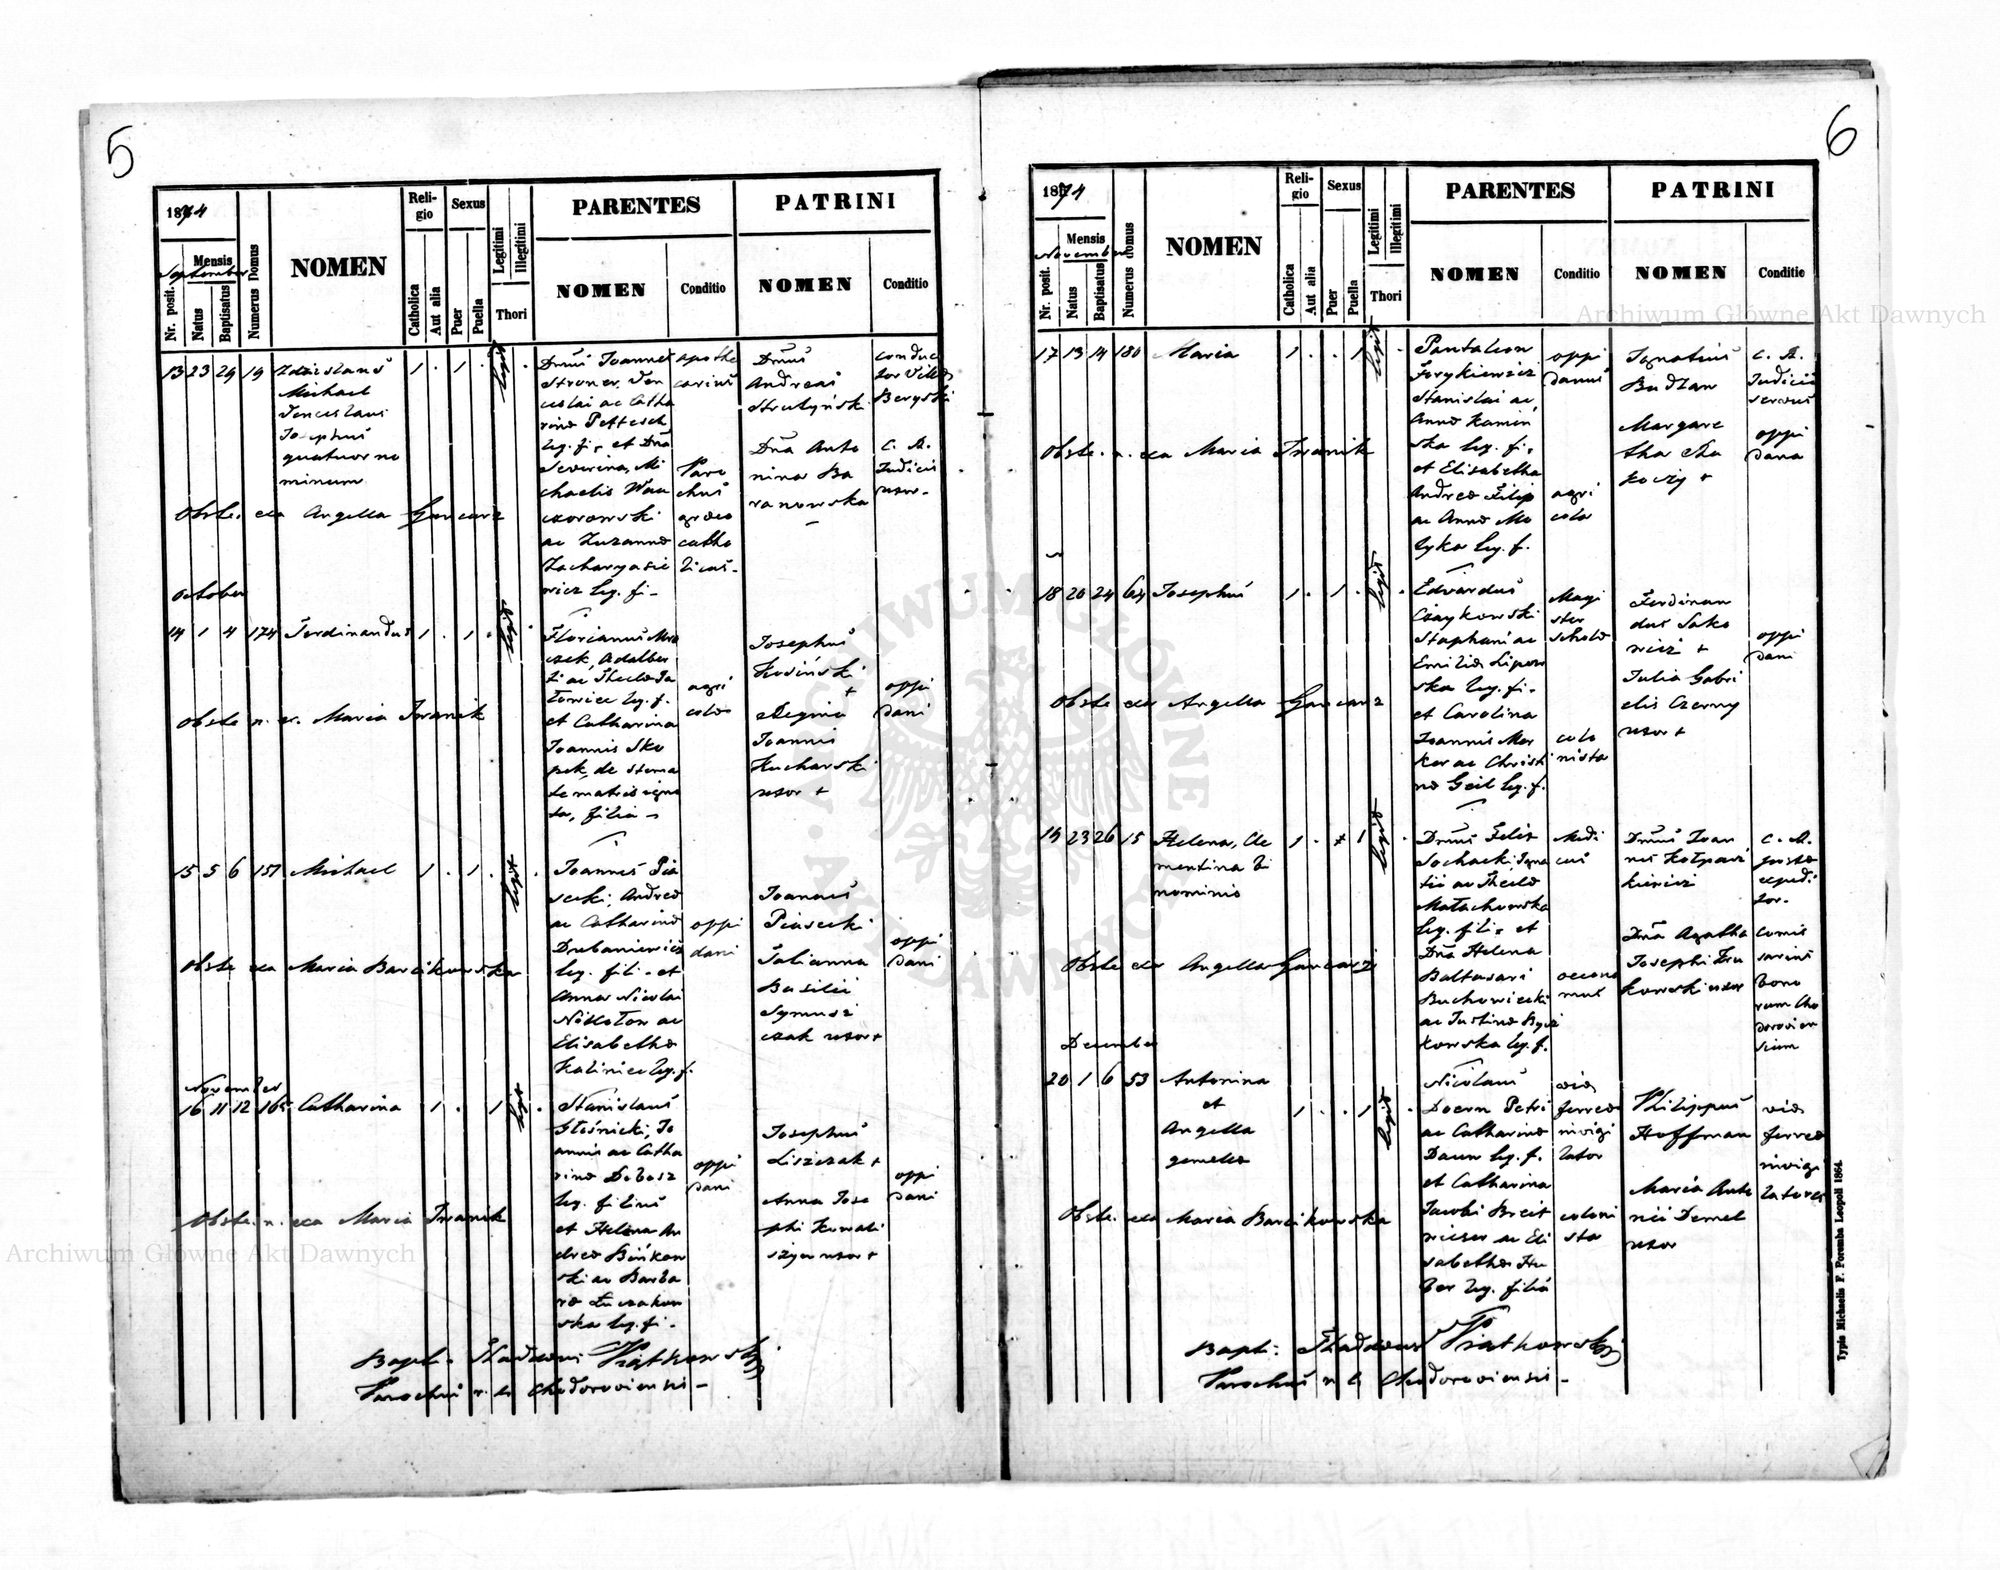 5
1874
Mensis
September
Nr. posit.
Natus
Baptisatus
Numerus Domus
NOMEN
Religio
Catholica
Aut alia
Sexus
Puer
Puella
Legitimi
Illegitimi
Thori
PARENTES
NOMEN
Conditio
PATRINI
NOMEN
Conditio
13 23 29 19
Michael
Josephus
quatuor no
minum
1 . 1 .
Dnus Joannes
Stroner, Ven
ceslai ac Catha
rina
leg. fi. et Dna
Severina, Mi
chaelis
ac Zuzanna
Zacharyasie
wicz leg. fi.
apothe
carius
Paro
chus
graeco
catho
licus.
Dnus
Andreas
Strutyński
Dna Anto
nina Ba
ranowska
conduc
C. R.
Judicii
uxor.
Obste. exa Angella Gancarz
October
14 1 4 174 Ferdinandus 1 . 1 .
Josephus
+
Regina
Joannis
Kucharski
uxor +
oppi
dani
Florianus
czek, Adalber
ti ac Thecla
leg. f.
et Catharina
Joannis Sko
pek, de
filia
agri
cola
Obste n. ex. Maria Iwanik
15 5 6 157 Michael 1 . 1 .
Joannes Pia
secki, Andrea
ac Catharina
Dubaniewicz
leg. fil. et
Anna Nicolai
ac
Elisabetha
Kaliniec leg. f.
oppi
dani
Joannes
Piasecki
Julianna
Basilii
Symusi
czak uxor +
oppi
dani
Obste exa Maria Barcikowska
November
16 11 12 165 Catharina 1 . 1
Stanislaus
Głośnicki, Jo
annis ac Catha
rina Debosz
leg. filius
et Helena An
drea Bińkow
ski ac Barba
ra Łuczakow
ska leg. fi.
oppi
dani
Josephus
Liszczak +
Anna Jose
phi Kowali
szyn uxor +
oppi
dani
Obste. n. exa Maria Iwanik
Bapt. Thadeus Piątkowski
Parochus r. l. Chodoroviensis
6
1874
Mensis
November
Nr. posit.
Natus
Baptisatus
Numerus domus
NOMEN
Religio
Catholica
Aut alia
Sexus
Puer
Puella
Legitimi
Illegitimi
Thori
PARENTES
NOMEN
Conditio
PATRINI
NOMEN
Conditie
17 13 14 180 Maria 1 . . 1
Pantaleon
Ferykiewicz
Stanislai ac
Anna Kamin
ska leg. fi.
et Elisabetha
Andrea Filip
ac Anna Mo
tyka leg. f.
oppi
danus
agri
cola
Ignatius
Budzan
Margare
tha
+
C. R.
Judicii
servus
oppi
dana
Obste. n. exa Maria Iwanik
18 20 24 64 Josephus 1 . 1 .
Edvardus
Czaykowski
Stephani ac
Emilia Lipow
ska leg. fi.
et Carolina
Joannis Mer
ker ac Christi
na Geil leg. f.
Magi
ster
schola
colo
nista
Ferdinan
dus Sako
wicz +
Julia Gabri
elis Czerny
uxor +
oppi
dani
Obste exa Angella Gancarz
19 23 26 15 Helena, Cle
mentina bi
nominis
1 . 1
Dnus Felix
Sochacki Igna
tii ac Thecla
Małachowska
leg. fili. et
Dna Helena
Baltasari
Buchowiecki
ac Justina
kowska leg. f.
Medi
cus
oecono
mus
Dnus Joan
nes
kiewicz
Dna Agatha
Josephi
kowski uxor
C. R.
posta
expedi
tor.
comis
sarius
bono
rum Cho
dorovien
sium
Obste exa Angella Gancarz
December
20 1 6 53 Antonina
et
Angella
gemella
1 . . 1 .
Nicolaus
Doern Petri
ac Catharina
Daum leg. f.
et Catharina
Jacobi Breit
wieser ac Eli
sabetha Hu
ber leg. filia
via
ferrea
invigi
lator
coloni
sta
Philippus
Hoffman
Maria Anto
nii Demel
uxor
via
ferrea
invigi
latores
Obste. exa Maria Barcikowska
Bapt: Thadeus Piątkowski
Parochus r. l. Chodoroviensis
Typis Michaelis F. Poremba Leopoli 1864.
Archiwum Główne Akt Dawnych
Archiwum Główne Akt Dawnych
ARCHIWUM GŁÓWNE AKT DAWNYCH